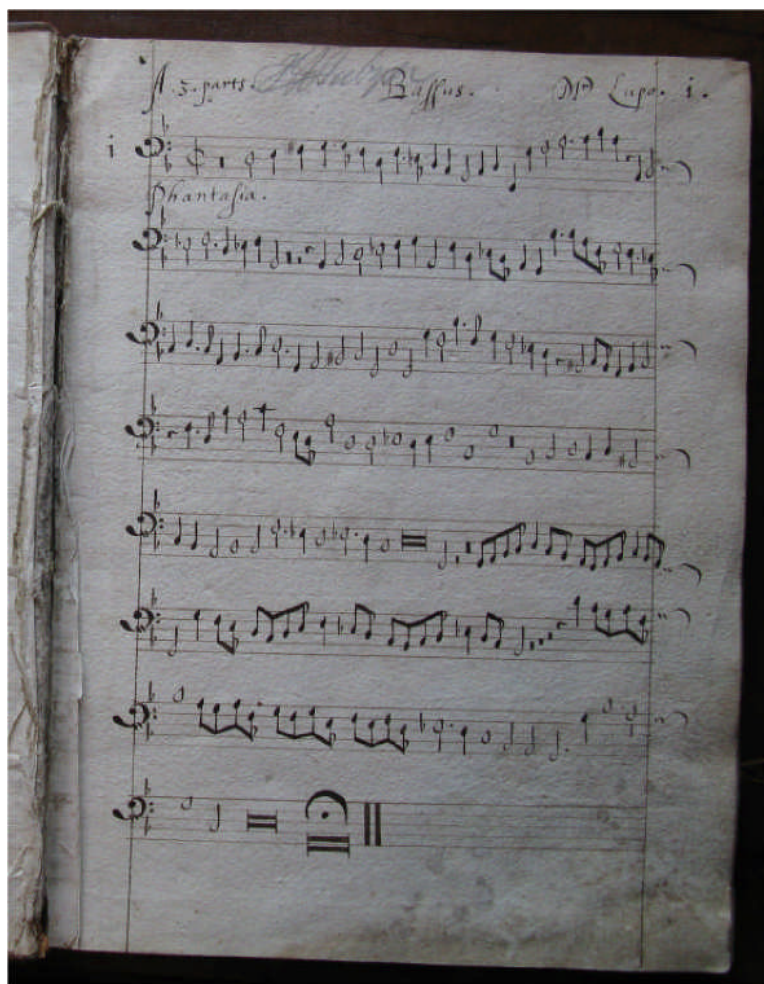 A. 3. parts. Bassus. Mr Lupo. 1.
i
Phantasia.